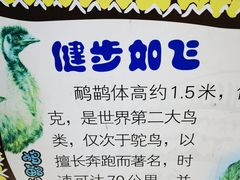 健步如飞
鸸鹋体高约1.5米，
克，是世界第二大鸟
类，仅次于鸵鸟，以
擅长奔跑而著名，时
速可达70公里，并
鸸鹋